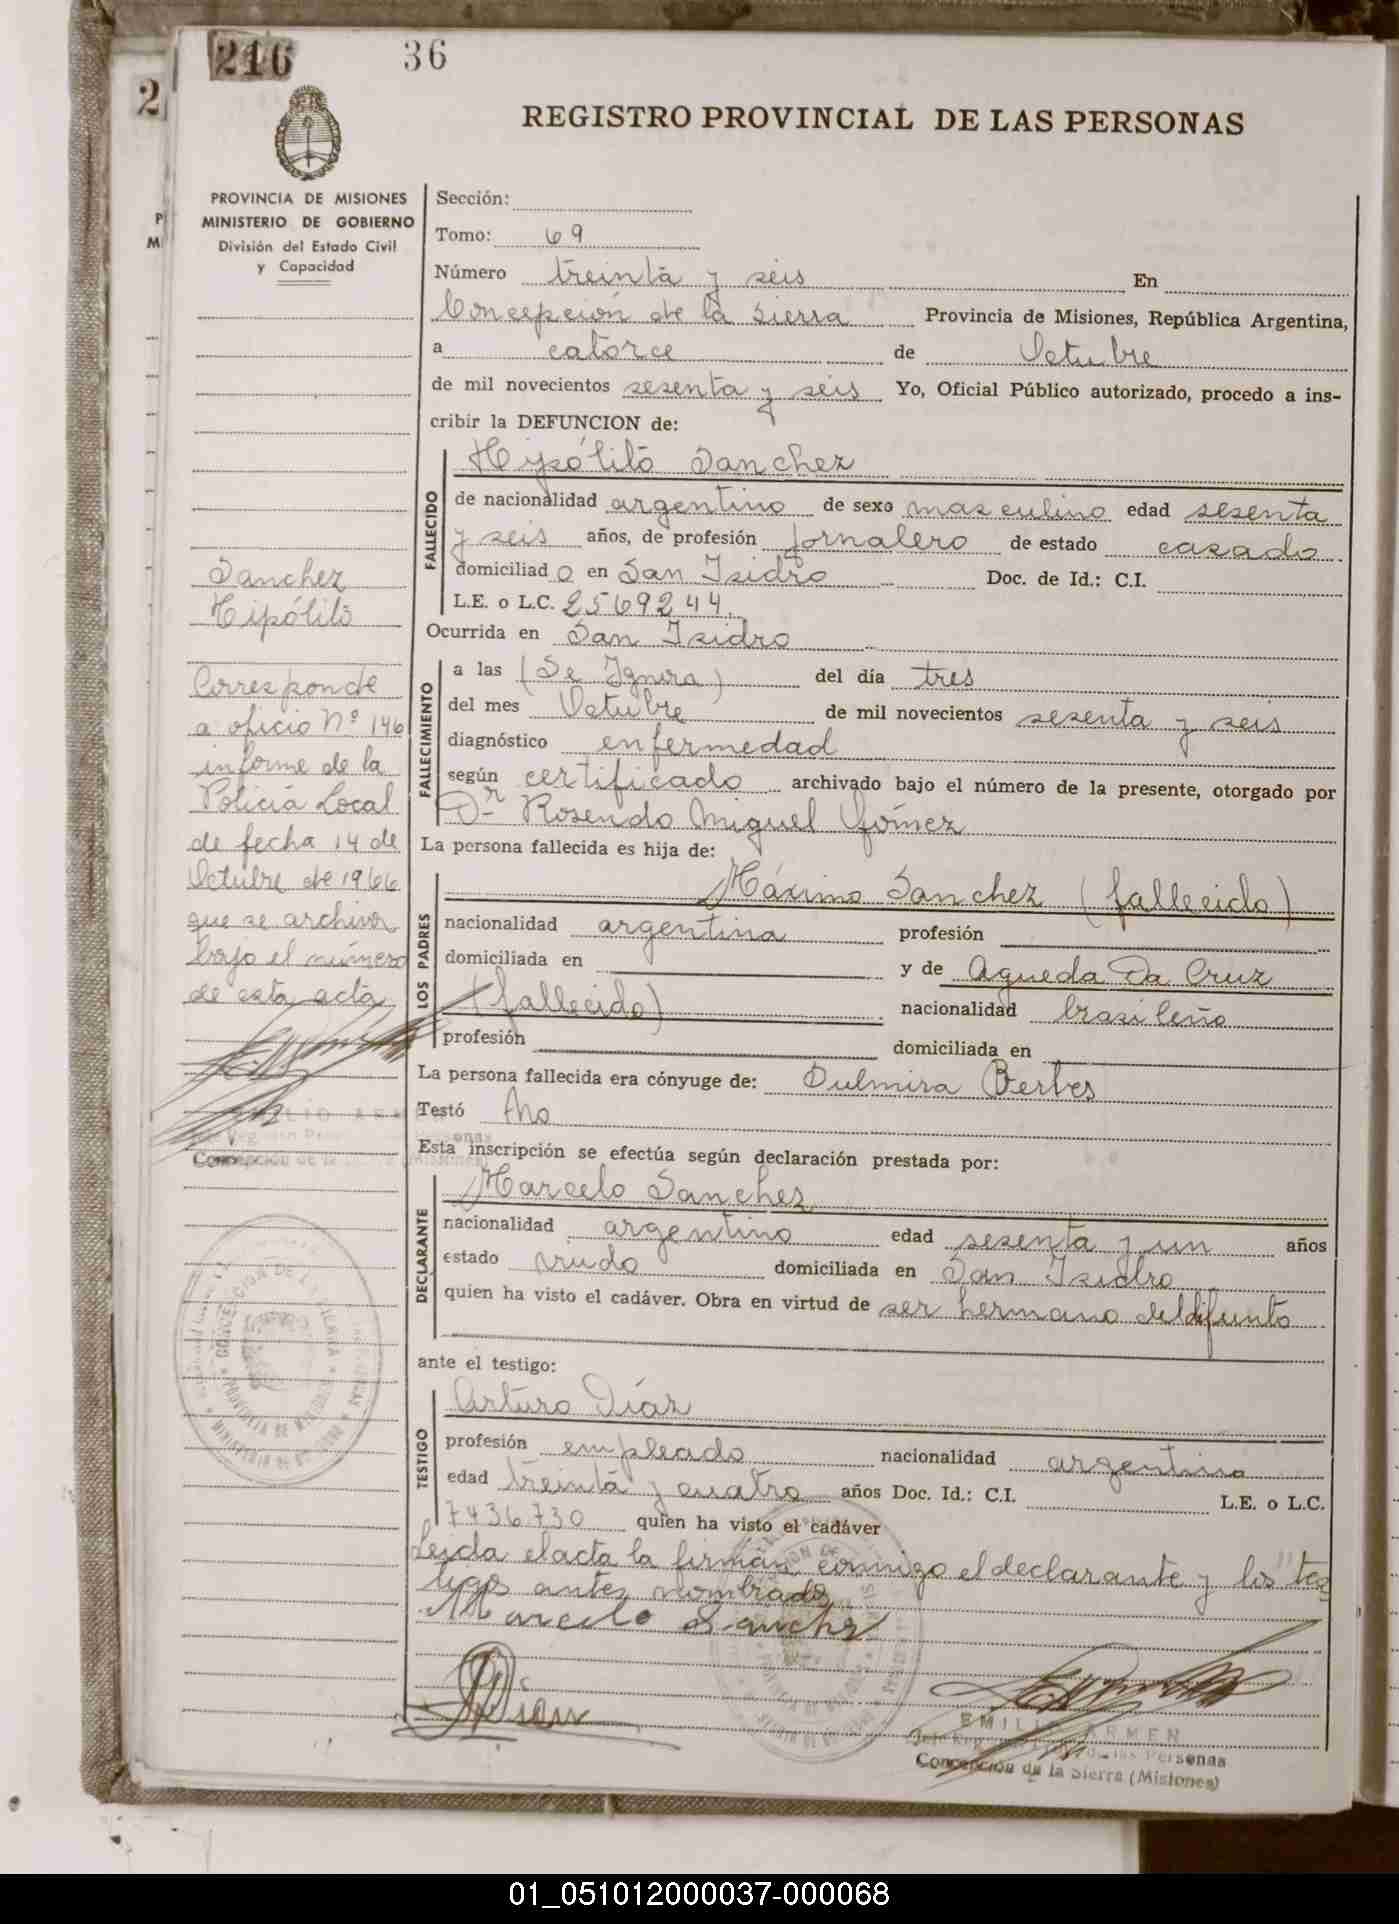 216 36
REGISTRO PROVINCIAL DE LAS PERSONAS
PROVINCIA DE MISIONES
MINISTERIO DE GOBIERNO
División del Estado Civil
y Capacidad
Sección:
Tomo: 69
Número treinta y seis En
Concepción de la Sierra Provincia de Misiones, República Argentina,
a catorce de Octubre
de mil novecientos sesenta y seis Yo, Oficial Público autorizado, procedo a ins-
cribir la DEFUNCION de:
FALLECIDO
Hipólito Sanchez
de nacionalidad argentino de sexo masculino edad sesenta
y seis años, de profesión jornalero de estado casado
domiciliado en San Isidro Doc. de Id.: C.I.
L.E. o L.C. 2569244.
Ocurrida en San Isidro
FALLECIMIENTO
a las (Se Ignora) del día tres
del mes Octubre de mil novecientos sesenta y seis
diagnóstico enfermedad
según certificado archivado bajo el número de la presente, otorgado por
Dr Rosendo Miguel Gómez
La persona fallecida es hija de:
LOS PADRES
Máximo Sanchez (fallecido)
nacionalidad argentina profesión
domiciliada en y de Agueda Da Cruz
(fallecido) nacionalidad brasileño
profesión domiciliada en
La persona fallecida era cónyuge de: Dulmira Berbes
Testó No
Esta inscripción se efectúa según declaración prestada por:
DECLARANTE
Marcelo Sanchez
nacionalidad argentino edad sesenta y un años
estado viudo domiciliada en San Isidro
quien ha visto el cadáver. Obra en virtud de ser hermano del difunto
ante el testigo:
TESTIGO
Arturo Díaz
profesión empleado nacionalidad argentino
edad treinta y cuatro años Doc. Id.: C.I. L.E. o L.C.
7436730 quien ha visto el cadáver
Leida el acta la firman conmigo el declarante y los tes
tigos antes nombrados
Marcelo Sanchez
EMILIO ARMEN
Concepción de la Sierra (Misiones)
Sanchez
Hipólito
Corresponde
a oficio Nº 146
informe de la
Policía Local
de fecha 14 de
Octubre de 1966
que se archiva
bajo el número
de esta acta
01_051012000037-000068